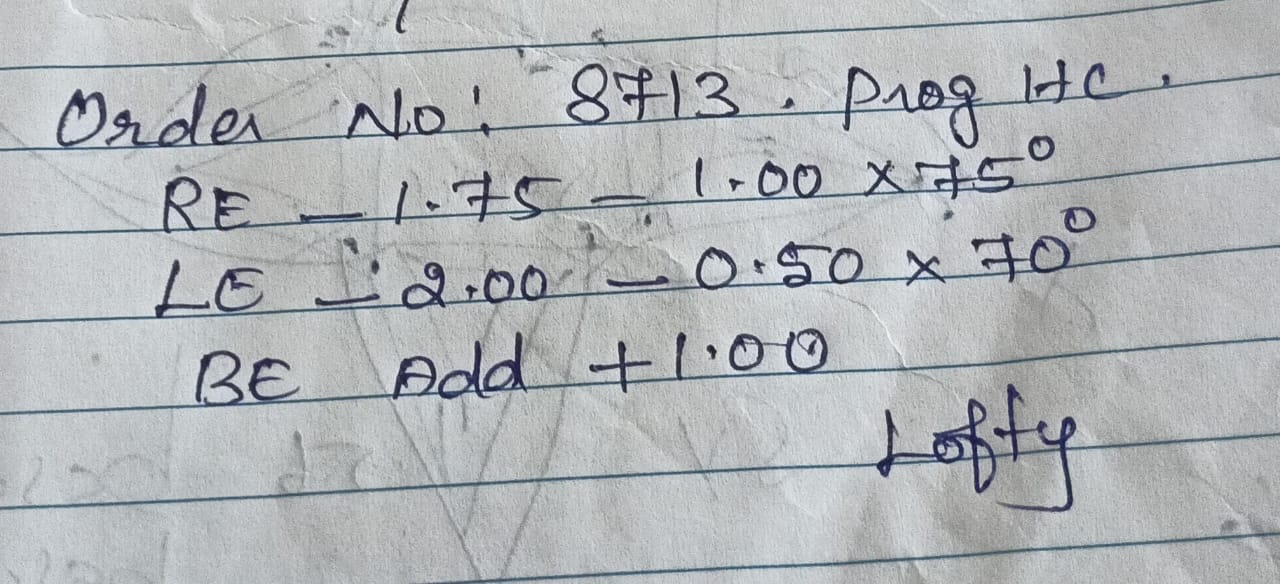 Order No: 8713. Prog HC.
RE - 1.75 - 1.00 x 75°
LE - 2.00 - 0.50 x 70°
BE Add +1.00
Lofty